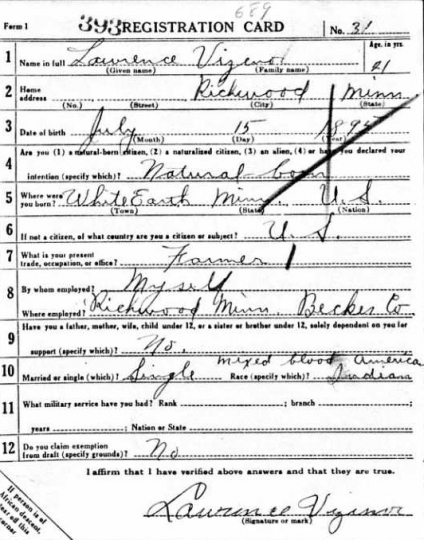 689
Form 1 393 REGISTRATION CARD No. 31
1 Name in full Lawrence Vizenor Age, in yrs. 21
(Given name) (Family name)
2 Home address Richwood Minn
(No.) (Street) (City) (State)
3 Date of birth July 15 1895
(Month) (Day) (Year)
4 Are you (1) a natural-born citizen, (2) a naturalized citizen, (3) an alien, (4) or have you declared your
intention (specify which)? Natural born
5 Where were you born? White Earth Minn. U.S.
(Town) (State) (Nation)
6 If not a citizen, of what country are you a citizen or subject? U.S.
7 What is your present trade, occupation, or office? Farmer 1
8 By whom employed? Myself
Where employed? Richwood Minn. Becker Co
9 Have you a father, mother, wife, child under 12, or a sister or brother under 12, solely dependent on you for
support (specify which)? No.
mixed blood America
10 Married or single (which)? Single Race (specify which)? Indian
11 What military service have you had? Rank ; branch ;
years ; Nation or State
12 Do you claim exemption from draft (specify grounds)? No
I affirm that I have verified above answers and that they are true.
Lawrence Vizenor
(Signature or mark)
If person is of
African descent,
tear off this
corner.